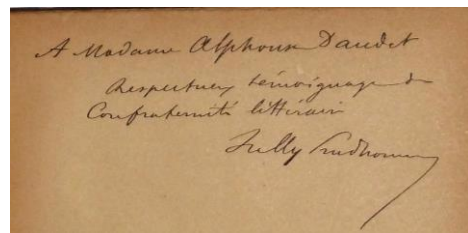 A Madame Alphonse Daudet
Respectueux témoignage de
Confraternité littéraire
Sully Prudhomme